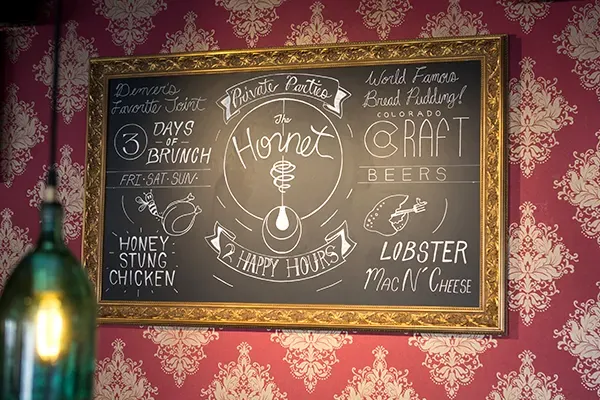 Denver's
Favorite Joint
3 DAYS
OF
BRUNCH
FRI·SAT·SUN·
HONEY
STUNG
CHICKEN
Private Parties
The
Hornet
2 HAPPY HOURS
World Famous
Bread Pudding!
COLORADO
CRAFT
BEERS
LOBSTER
MAC N' CHEESE